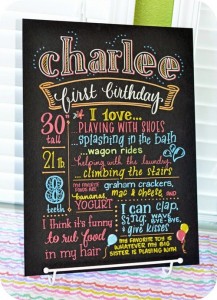 charlee
first birthday
I love...
30" tall
PLAYING WITH SHOES
...splashing in the bath
...wagon rides
21 lb
helping with the laundry...
...climbing the stairs
8 teeth
MY FAVORITE FOODS ARE
graham crackers,
bananas, mac & cheese and
YOGURT
I can clap,
SING, WAVE, BYE-BYE,
& give kisses
I think it's funny
to rub food
in my hair
MY FAVORITE TOY IS
WHATEVER MY BIG
SISTER IS PLAYING WITH